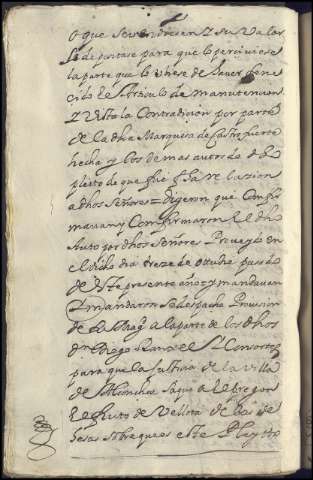 o que se vendiesen Y su valor
se depositase para que lo perciviese
la parte que lo Vuiese de hauer fene
cido el Articulo de manutencion
Y Vista la Contradicion por parte
de la dha Marquesa de Castrofuerte
hecha y los demas autos de el
pleito de que fue fha relazion
a dhos Señores = Digeron que Confir
mauan y Confirmaron el dho
Auto por dhos Señores Proveydo en
el dicho dia treze de Ottubre pasado
de este presente año y mandauan
Y mandaron se despache Prouision
de Su Mag a la parte de los dhos
Dn Diego y Consorte
para que la Justicia de la Villa
de saque a el pregon
el fruto de Vellota de las de
hesas sobre que es este Pleytto